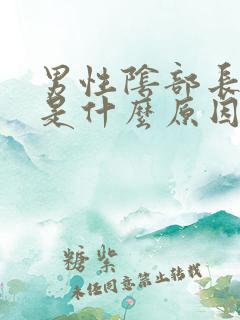 男性陰部長
是什麼原因
糖紫
未經同意禁止轉載